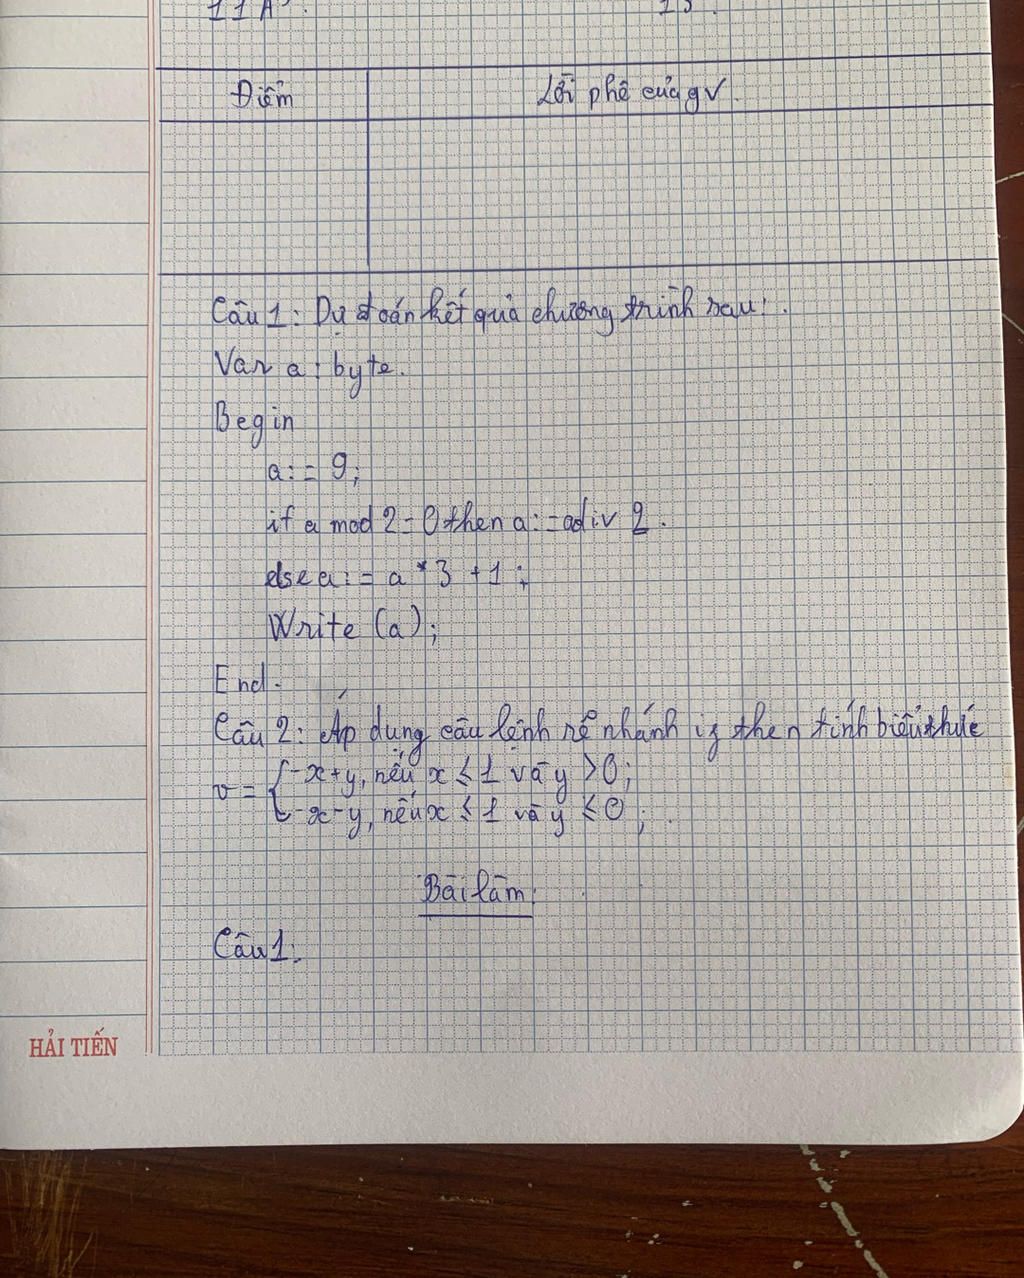 11A
Điểm
Lời phê của gv.
Câu 1: Dự đoán kết quả chương trình sau:.
Var a: byte.
Begin
a:= 9;
if a mod 2=0 then a:=adiv 2.
else a:= a*3 +1;
Write (a);
End.
Câu 2: Áp dụng câu lệnh rẽ nhánh if then tính biểu thức
v = { -x+y, nếu x ≤ 1 và y > 0;
-x-y, nếu x ≤ 1 và y ≤ 0;.
Bài làm:
Câu 1:
HẢI TIẾN